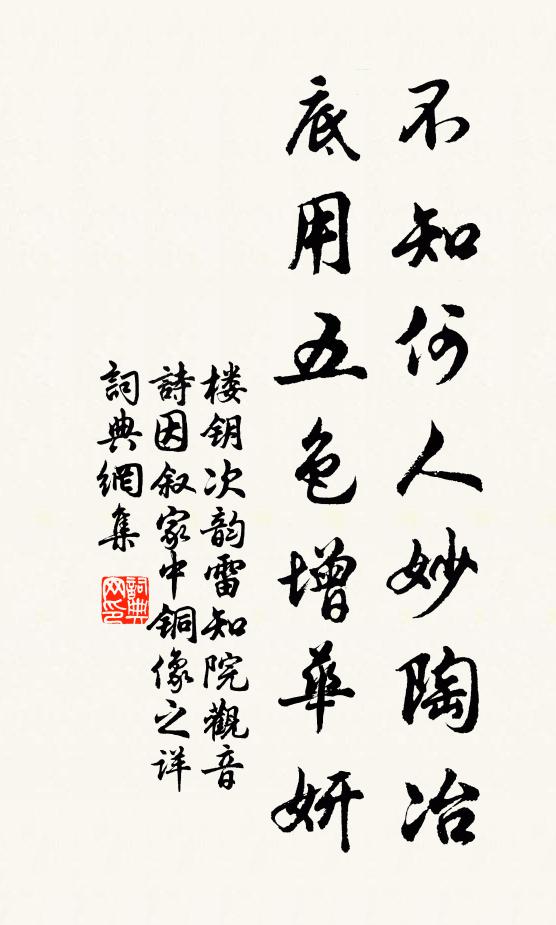 不知何人妙陶冶
底用五色增華妍
楼钥次韵雷知院觀音
詩因叙家中銅像之详
詞典網集
詞典